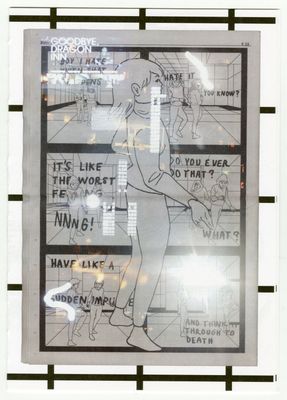 GOODBYE,
DRAGON
INN
BOY I HATE
WHEN THAT
HATE IT
YOU KNOW?
IT'S LIKE
THE WORST
NNNG!
DO YOU EVER
DO THAT?
WHAT?
HAVE LIKE A
SUDDEN
AND THINK IT
THROUGH TO
DEATH